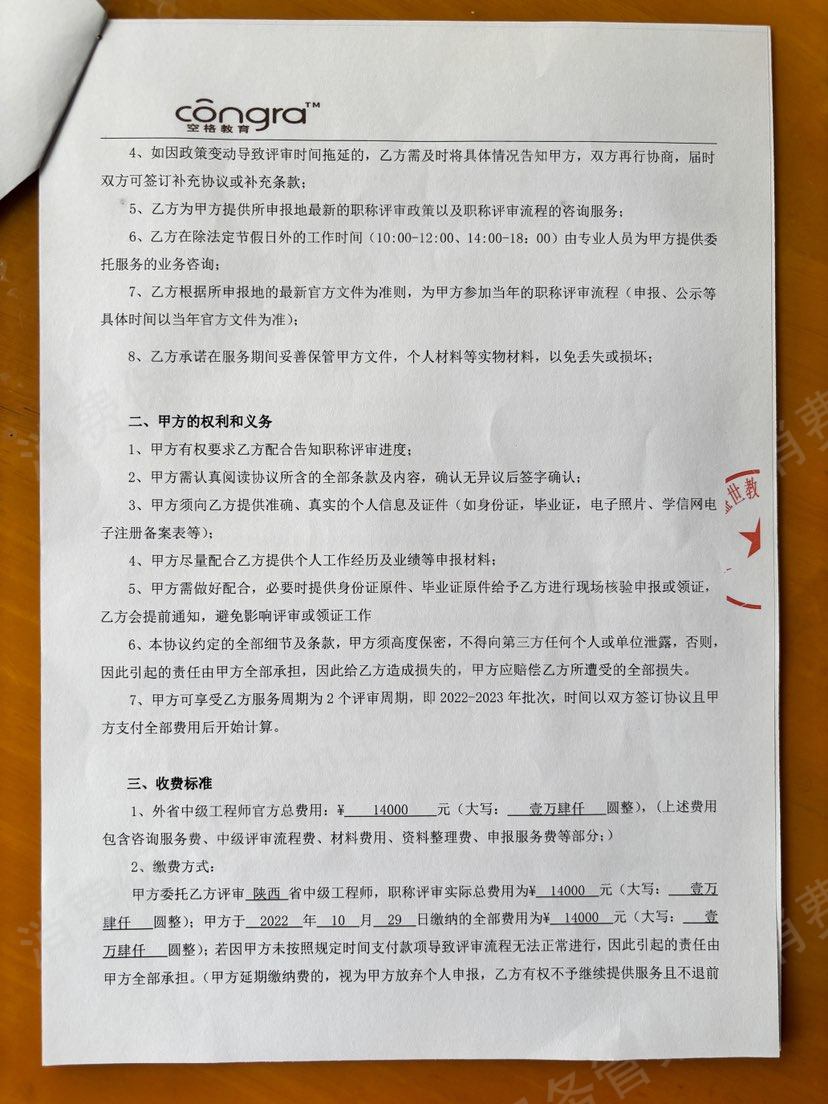 congra™
空格教育
4、如因政策变动导致评审时间拖延的，乙方需及时将具体情况告知甲方，双方再行协商，届时
双方可签订补充协议或补充条款；
5、乙方为甲方提供所申报地最新的职称评审政策以及职称评审流程的咨询服务；
6、乙方在除法定节假日外的工作时间（10:00-12:00、14:00-18：00）由专业人员为甲方提供委
托服务的业务咨询；
7、乙方根据所申报地的最新官方文件为准则，为甲方参加当年的职称评审流程（申报、公示等
具体时间以当年官方文件为准）；
8、乙方承诺在服务期间妥善保管甲方文件，个人材料等实物材料，以免丢失或损坏；
二、甲方的权利和义务
1、甲方有权要求乙方配合告知职称评审进度；
2、甲方需认真阅读协议所含的全部条款及内容，确认无异议后签字确认；
3、甲方须向乙方提供准确、真实的个人信息及证件（如身份证，毕业证，电子照片、学信网电
子注册备案表等）；
4、甲方尽量配合乙方提供个人工作经历及业绩等申报材料；
5、甲方需做好配合，必要时提供身份证原件、毕业证原件给予乙方进行现场核验申报或领证，
乙方会提前通知，避免影响评审或领证工作
6、本协议约定的全部细节及条款，甲方须高度保密，不得向第三方任何个人或单位泄露，否则，
因此引起的责任由甲方全部承担，因此给乙方造成损失的，甲方应赔偿乙方所遭受的全部损失。
7、甲方可享受乙方服务周期为 2 个评审周期，即 2022-2023 年批次，时间以双方签订协议且甲
方支付全部费用后开始计算。
世教
三、收费标准
1、外省中级工程师官方总费用：¥ 14000 元（大写： 壹万肆仟 圆整），（上述费用
包含咨询服务费、中级评审流程费、材料费用、资料整理费、申报服务费等部分；）
2、缴费方式：
甲方委托乙方评审 陕西 省中级工程师，职称评审实际总费用为¥ 14000 元（大写： 壹万
肆仟 圆整）；甲方于 2022 年 10 月 29 日缴纳的全部费用为¥ 14000 元（大写： 壹
万肆仟 圆整）；若因甲方未按照规定时间支付款项导致评审流程无法正常进行，因此引起的责任由
甲方全部承担。（甲方延期缴纳费的，视为甲方放弃个人申报，乙方有权不予继续提供服务且不退前